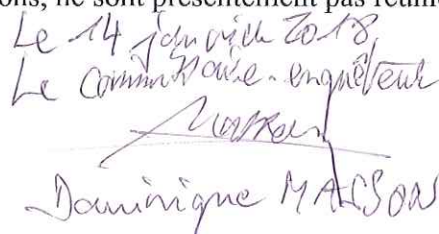 ons, ne sont présentement pas réunie
Le 14 janvier 2018,
Le Commissaire-enquêteur
Masson
Dominique MASSON